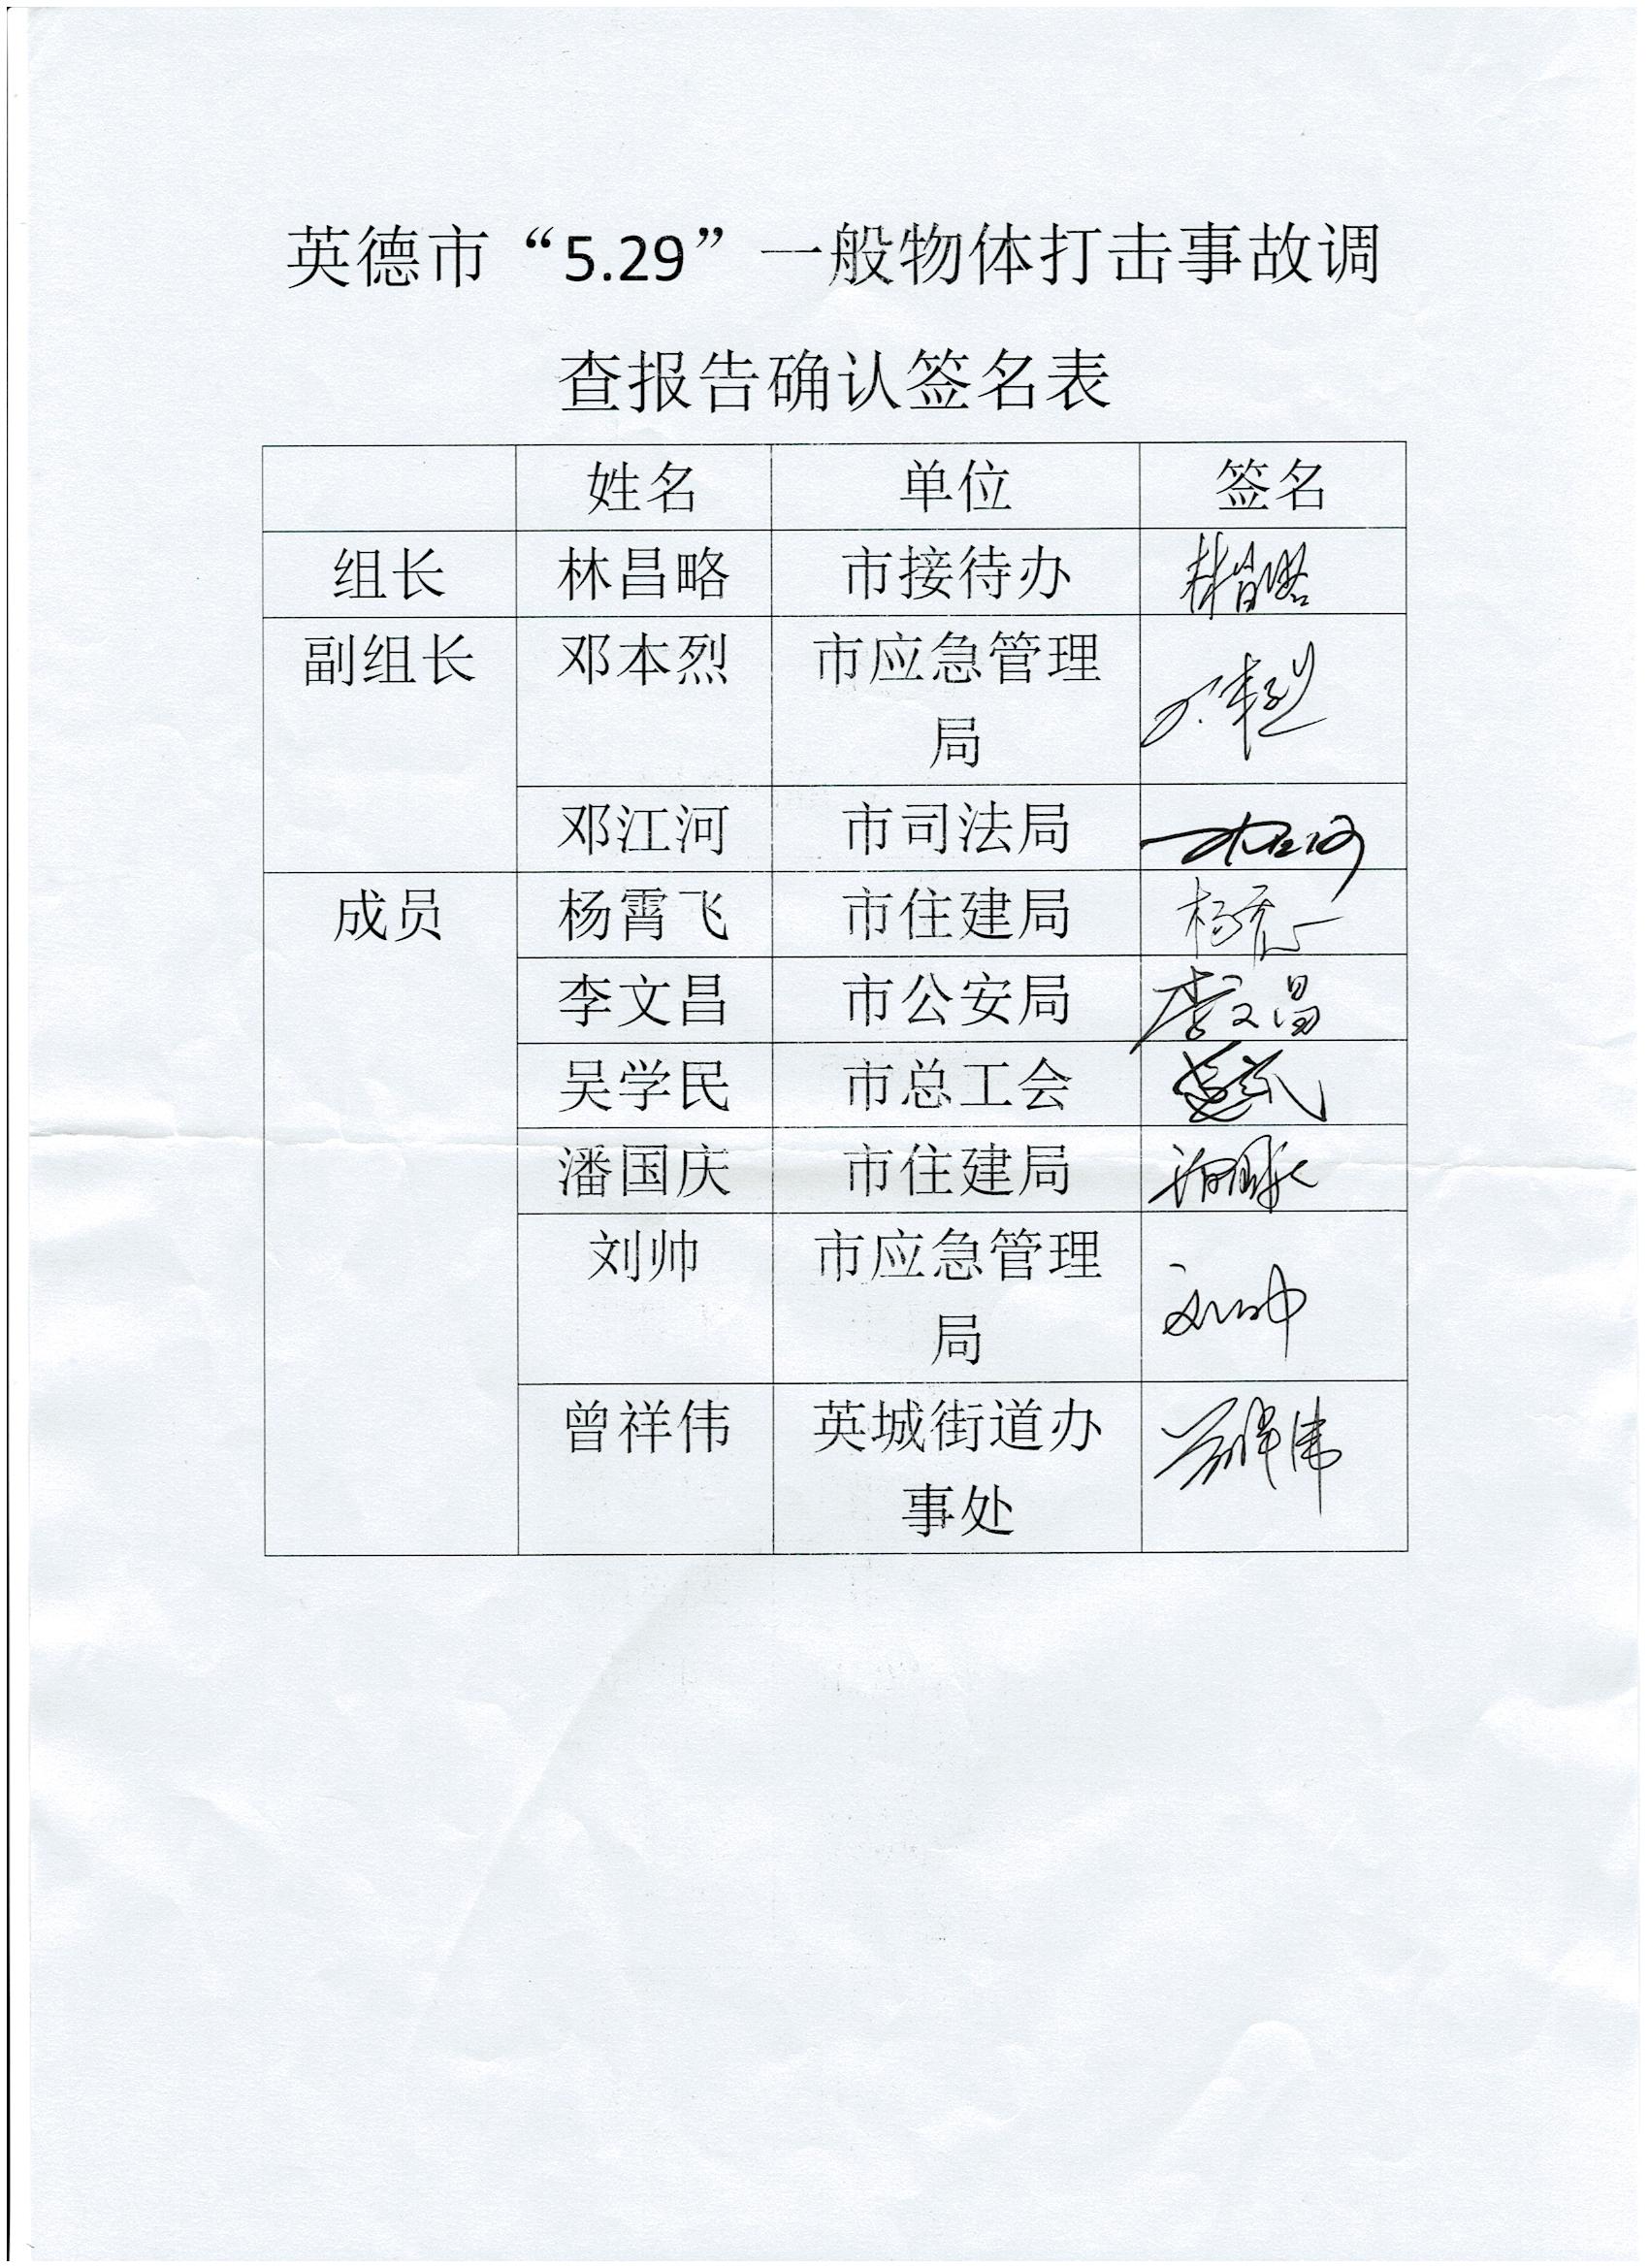 英德市“5.29”一般物体打击事故调
查报告确认签名表
姓名 单位 签名
组长 林昌略 市接待办 林昌略
副组长 邓本烈 市应急管理
局 邓本烈
邓江河 市司法局 邓江河
成员 杨霄飞 市住建局 杨霄飞
李文昌 市公安局 李文昌
吴学民 市总工会
潘国庆 市住建局 潘国庆
刘帅 市应急管理
局 刘帅
曾祥伟 英城街道办
事处 曾祥伟